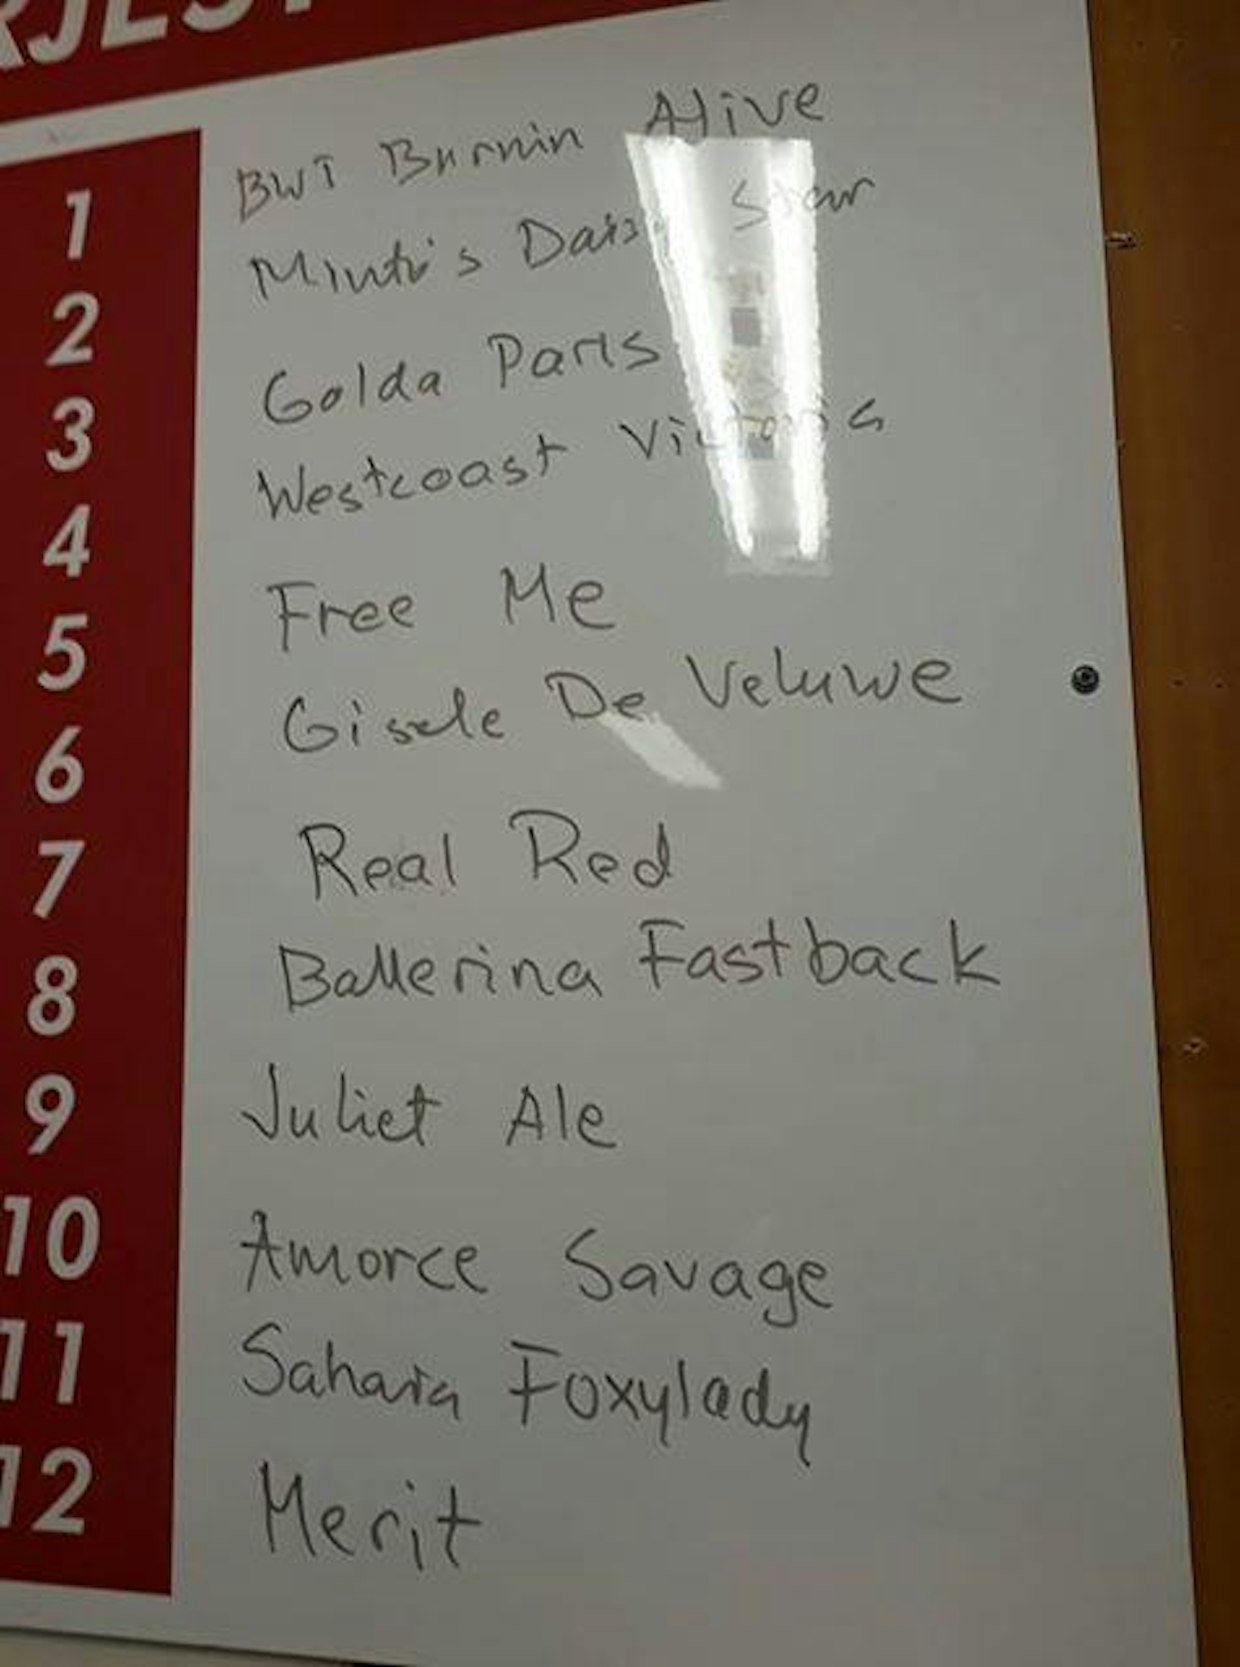 RJEST
1 BWT Burnin Alive
2 Minti's Daisy Star
3 Golda Paris
4 Westcoast Victoria
5 Free Me
6 Gisele De Veluwe
7 Real Red
8 Ballerina Fastback
9 Juliet Ale
10 Amorce Savage
11 Sahara Foxylady
12 Merit